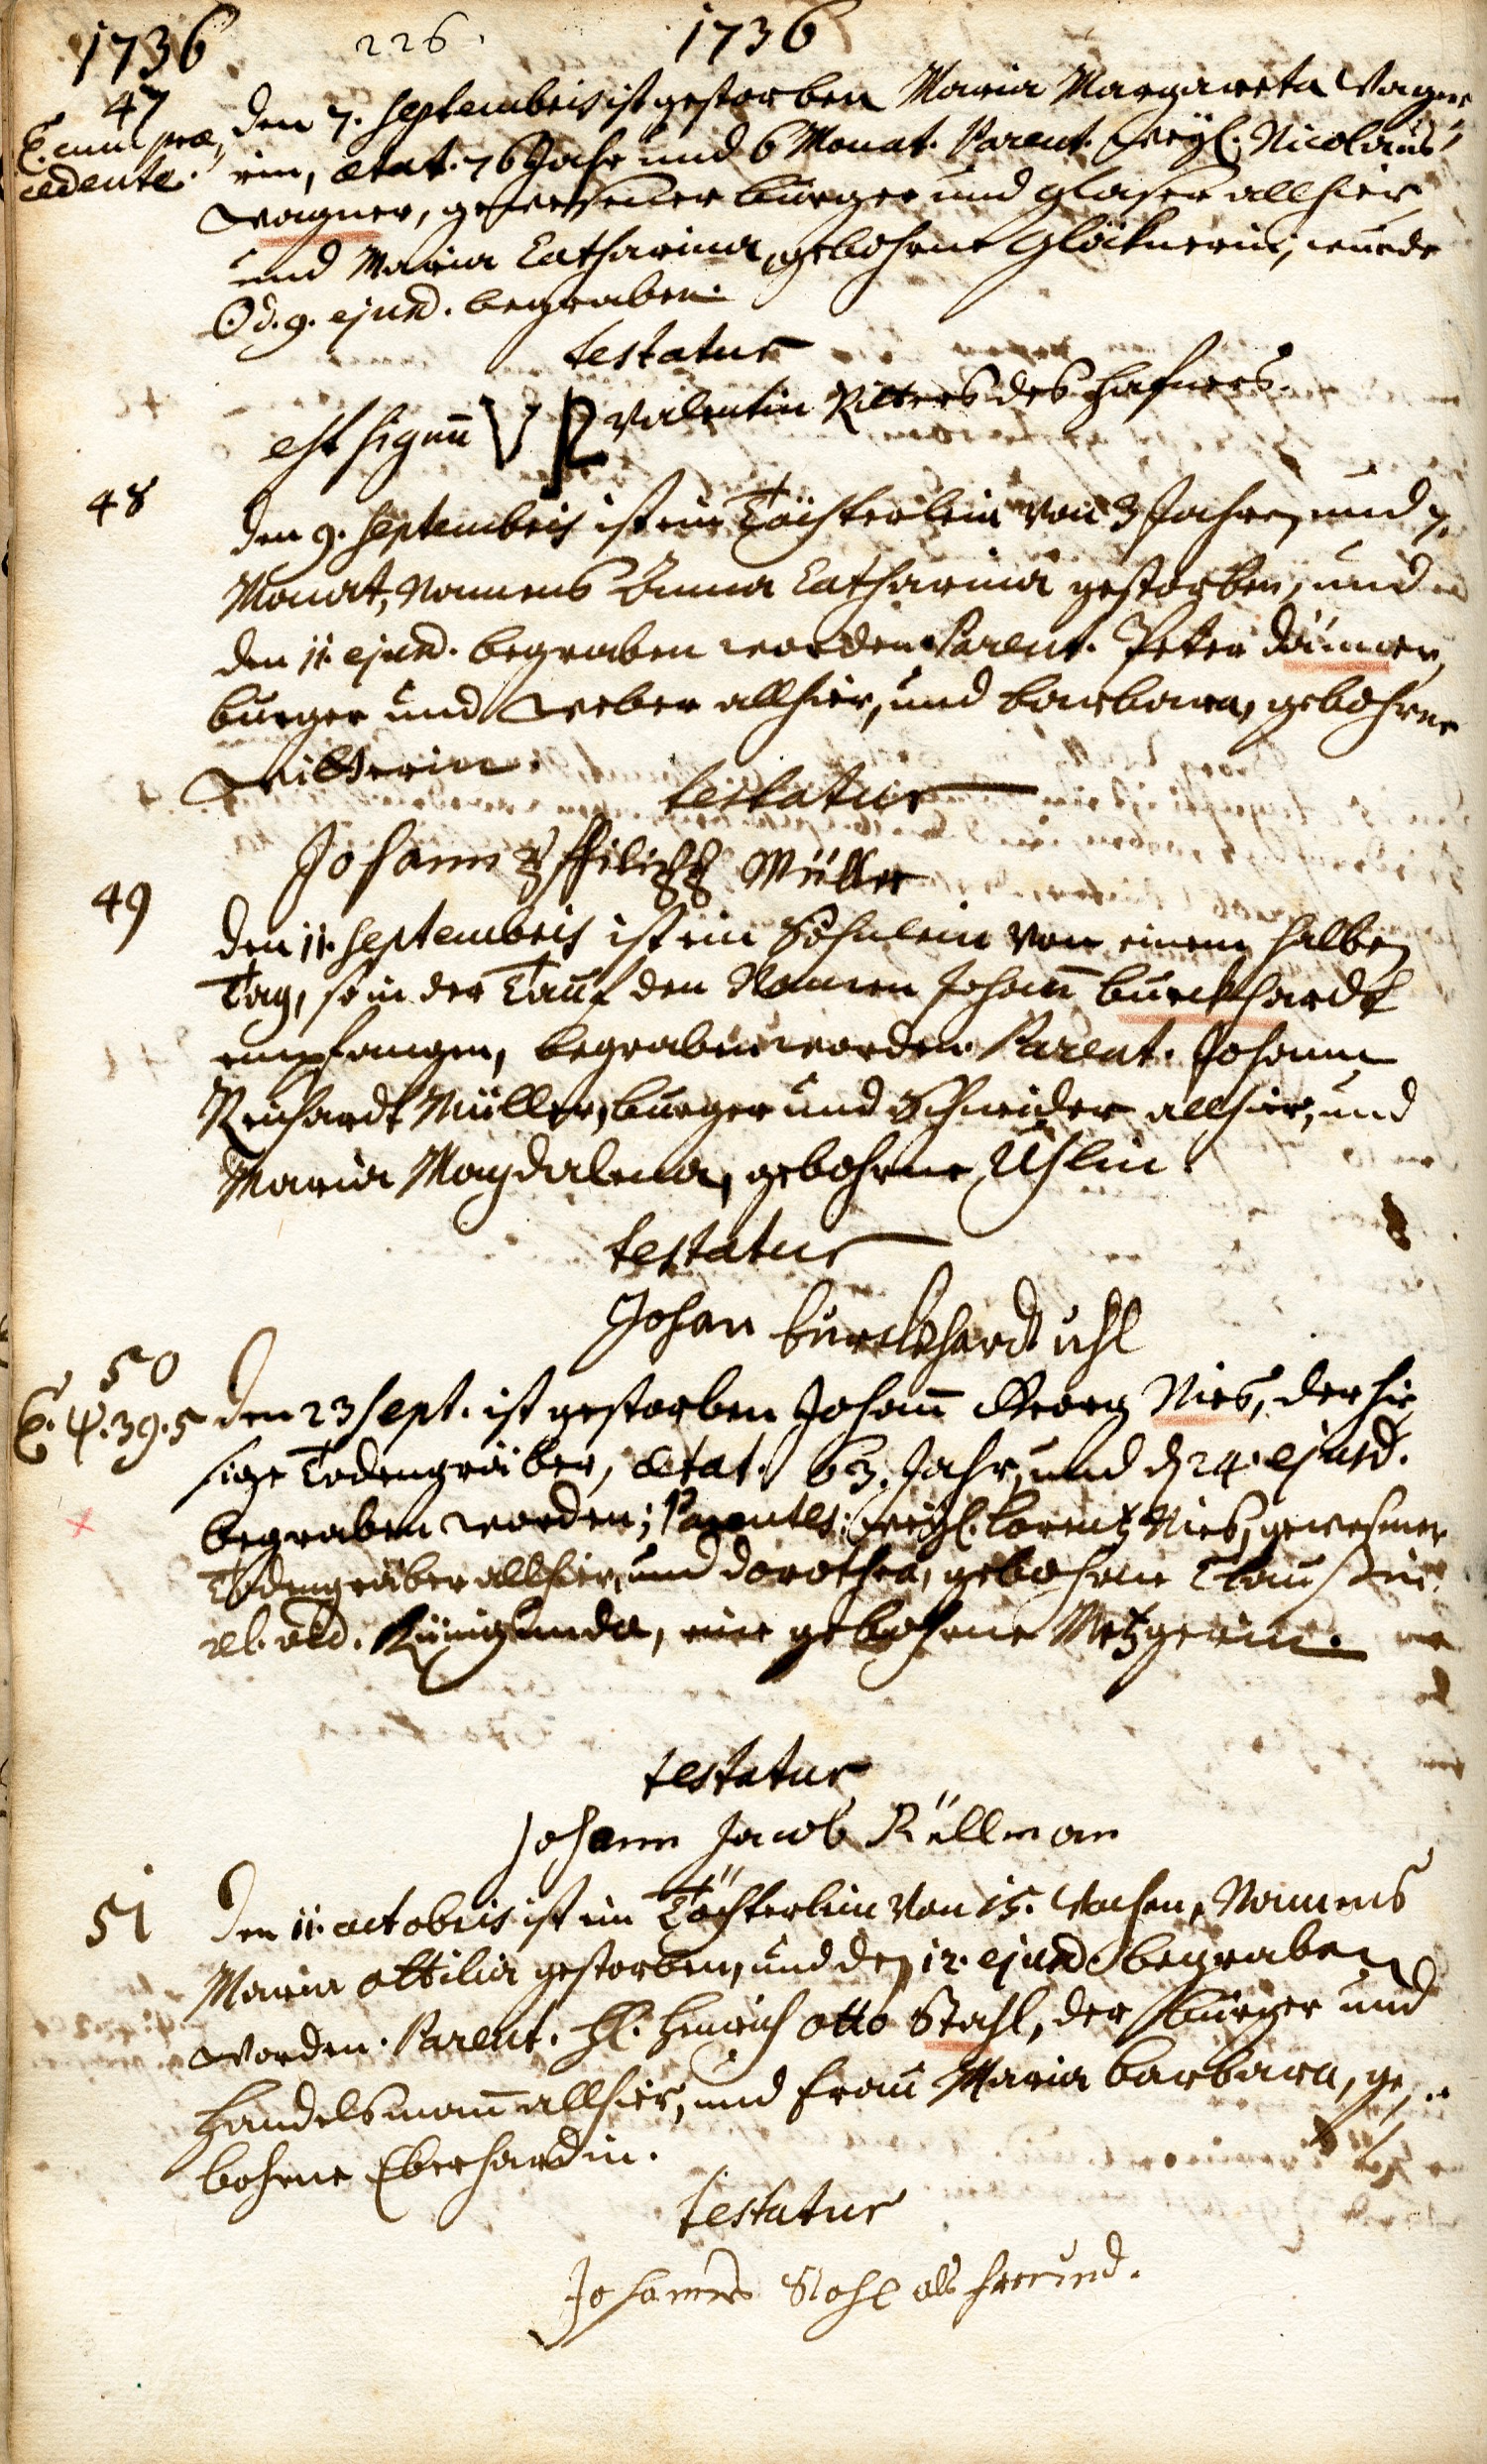 1736 226. 1736
47
E. cum præ-
cedente.
den 7. Septembris ist gestorben Maria Margareta Wagne-
rin, ætat. 76 Jahr und 6 Monat. Parent. weyl. Nicolaus
Wagner, gewesener burger und glaser allhier,
und Maria Catharina, gebohrne Glöcknerin, wurde
d. 9. ejusd. begraben.
testatur
est signū VR Valentin Ritters des hafners.
48
den 9. Septembris ist ein Töchterlein von 3 Jahren und 7.
Monat, Namens Anna Catharina gestorben, und
den 11. ejusd. begraben worden. Parent. Peter
burger und Weber allhier, und barbara, gebohrne
testatur
Johann Müller
49
den 11. Septembris ist ein Söhnlein von einem halben
Tag, so in der Tauf den Namen Johañ burckhardt
empfangen, begraben worden. Parent. Johann
Reichardt Müller, burger und Schneider allhier, und
Maria Magdalena, gebohrne Uhlin.
testatur
Johan burckhardt uhl
50
E. ψ. 39. 5
den 23 Sept. ist gestorben Johañ Georg Nies, der hie-
sige Todengräber, ætat. 63. Jahr, und d 24. ejusd.
begraben worden; Parentes: weyl. Lorentz Nies, gewesener
Todengräber allhier, und dorothea, gebohrne
rel. vid. Künigunda, eine gebohrne Metzgerin.
testatur
Johann Jacob Rüllman
51
den 11. octobris ist ein Töchterlein von 15. Wochen, Namens
Maria ottilia gestorben, und den 12. ejusd. begraben
worden. Parent. H. Henrich otto Stahl, der burger und
Handelsmañ allhier, und Frau Maria barbara, ge-
bohrne Eberhardin.
testatur
Johannes Stahl als freund.